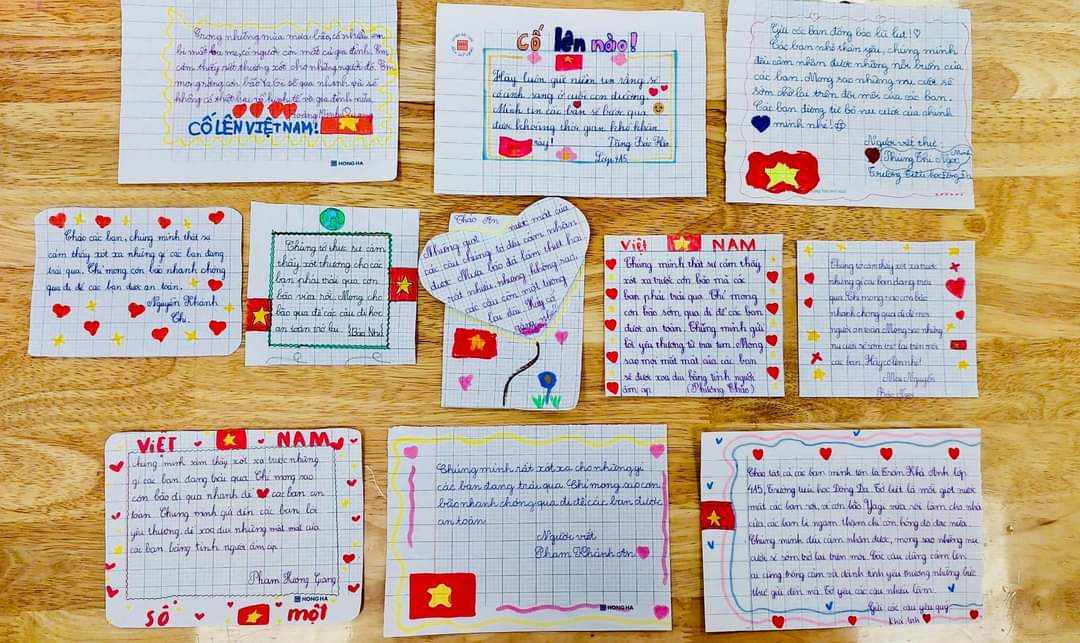 Trong những mùa mưa bão, có nhiều em
bị mất ba mẹ, có người còn mất cả gia đình. Em
cảm thấy rất thương xót cho những người đó. Em
mong rằng cơn bão sẽ qua nhanh và sẽ
không có thiệt hại về kinh tế và gia đình nữa.
CỐ LÊN VIỆT NAM!
HONG HA
Cố lên nào!
Hãy luôn giữ niềm tin rằng sẽ
có ánh sáng ở cuối con đường.
Mình tin các bạn sẽ vượt qua
được khoảng thời gian khó khăn
này!
Lớp 4A5
Gửi các bạn đồng bào lũ lụt!
Các bạn nhỏ thân yêu, chúng mình
đều cảm nhận được những nỗi buồn của
các bạn. Mong sao những nụ cười sẽ
sớm trở lại trên đôi môi của các bạn.
Các bạn đừng từ bỏ nụ cười của chính
mình nhé!
Người viết thư
Phùng Thị Ngọc Minh
Trường Tiểu học Đống Đa
Chào các bạn, chúng mình thật sự
cảm thấy xót xa những gì các bạn đang
trải qua. Chỉ mong cơn bão nhanh chóng
qua đi để các bạn được an toàn.
Nguyễn Khánh
Chi.
Chúng tớ thực sự cảm
thấy xót thương cho các
bạn phải trải qua cơn
bão vừa rồi. Mong cho
bão qua để các cậu đi học
an toàn trở lại.
Bảo Nhi
Thảo An
Những giọt nước mắt của
các cậu chúng tớ đều cảm nhận
được. Mưa bão đã làm thiệt hại
rất nhiều nhưng không sao,
các cậu còn một tương
lai dài. Hãy cố
gắng nhé!
Việt NAM
Chúng mình thật sự cảm thấy
xót xa trước cơn bão mà các
bạn phải trải qua. Chỉ mong
cơn bão sớm qua đi để các bạn
được an toàn. Chúng mình gửi
lời yêu thương từ trái tim. Mong
sao mọi mất mát của các bạn
sẽ được xoa dịu bằng tình người
ấm áp. (Phương Thảo)
Chúng tớ cảm thấy xót xa trước
những gì các bạn đang trải
qua. Chỉ mong sao cơn bão
nhanh chóng qua đi để mọi
người an toàn. Mong sao những
nụ cười sẽ sớm trở lại trên môi
các bạn. Hãy cố lên nhé!
Việt NAM
Chúng mình cảm thấy xót xa trước những
gì các bạn đang trải qua. Chỉ mong sao
cơn bão đi qua nhanh để các bạn an
toàn. Chúng mình gửi đến các bạn lời
yêu thương, để xoa dịu những mất mát của
các bạn bằng tình người ấm áp.
Phạm Hương Giang
HONG HA
SỐ một
Chúng mình rất xót xa cho những gì
các bạn đang trải qua. Chỉ mong sao cơn
bão nhanh chóng qua đi để các bạn được
an toàn
Người viết
Phạm Khánh An
HONG HA
Chào tất cả các bạn mình tên là Trần Khả Anh lớp
4A5, Trường tiểu học Đống Đa. Tớ biết là mỗi giọt nước
mắt các bạn rơi, vì cơn bão Yagi vừa rồi làm cho nhà
của các bạn bị ngập thậm chí còn hỏng đồ đạc nữa.
Chúng mình đều cảm nhận được, mong sao những nụ
cười sẽ sớm trở lại trên môi. Các cậu đừng cảm lên
ai cũng trông cảm và dành tình yêu thương những bức
thư gửi đến mà. Tớ yêu các cậu nhiều lắm.
Gửi các cậu yêu quý
Khả Anh